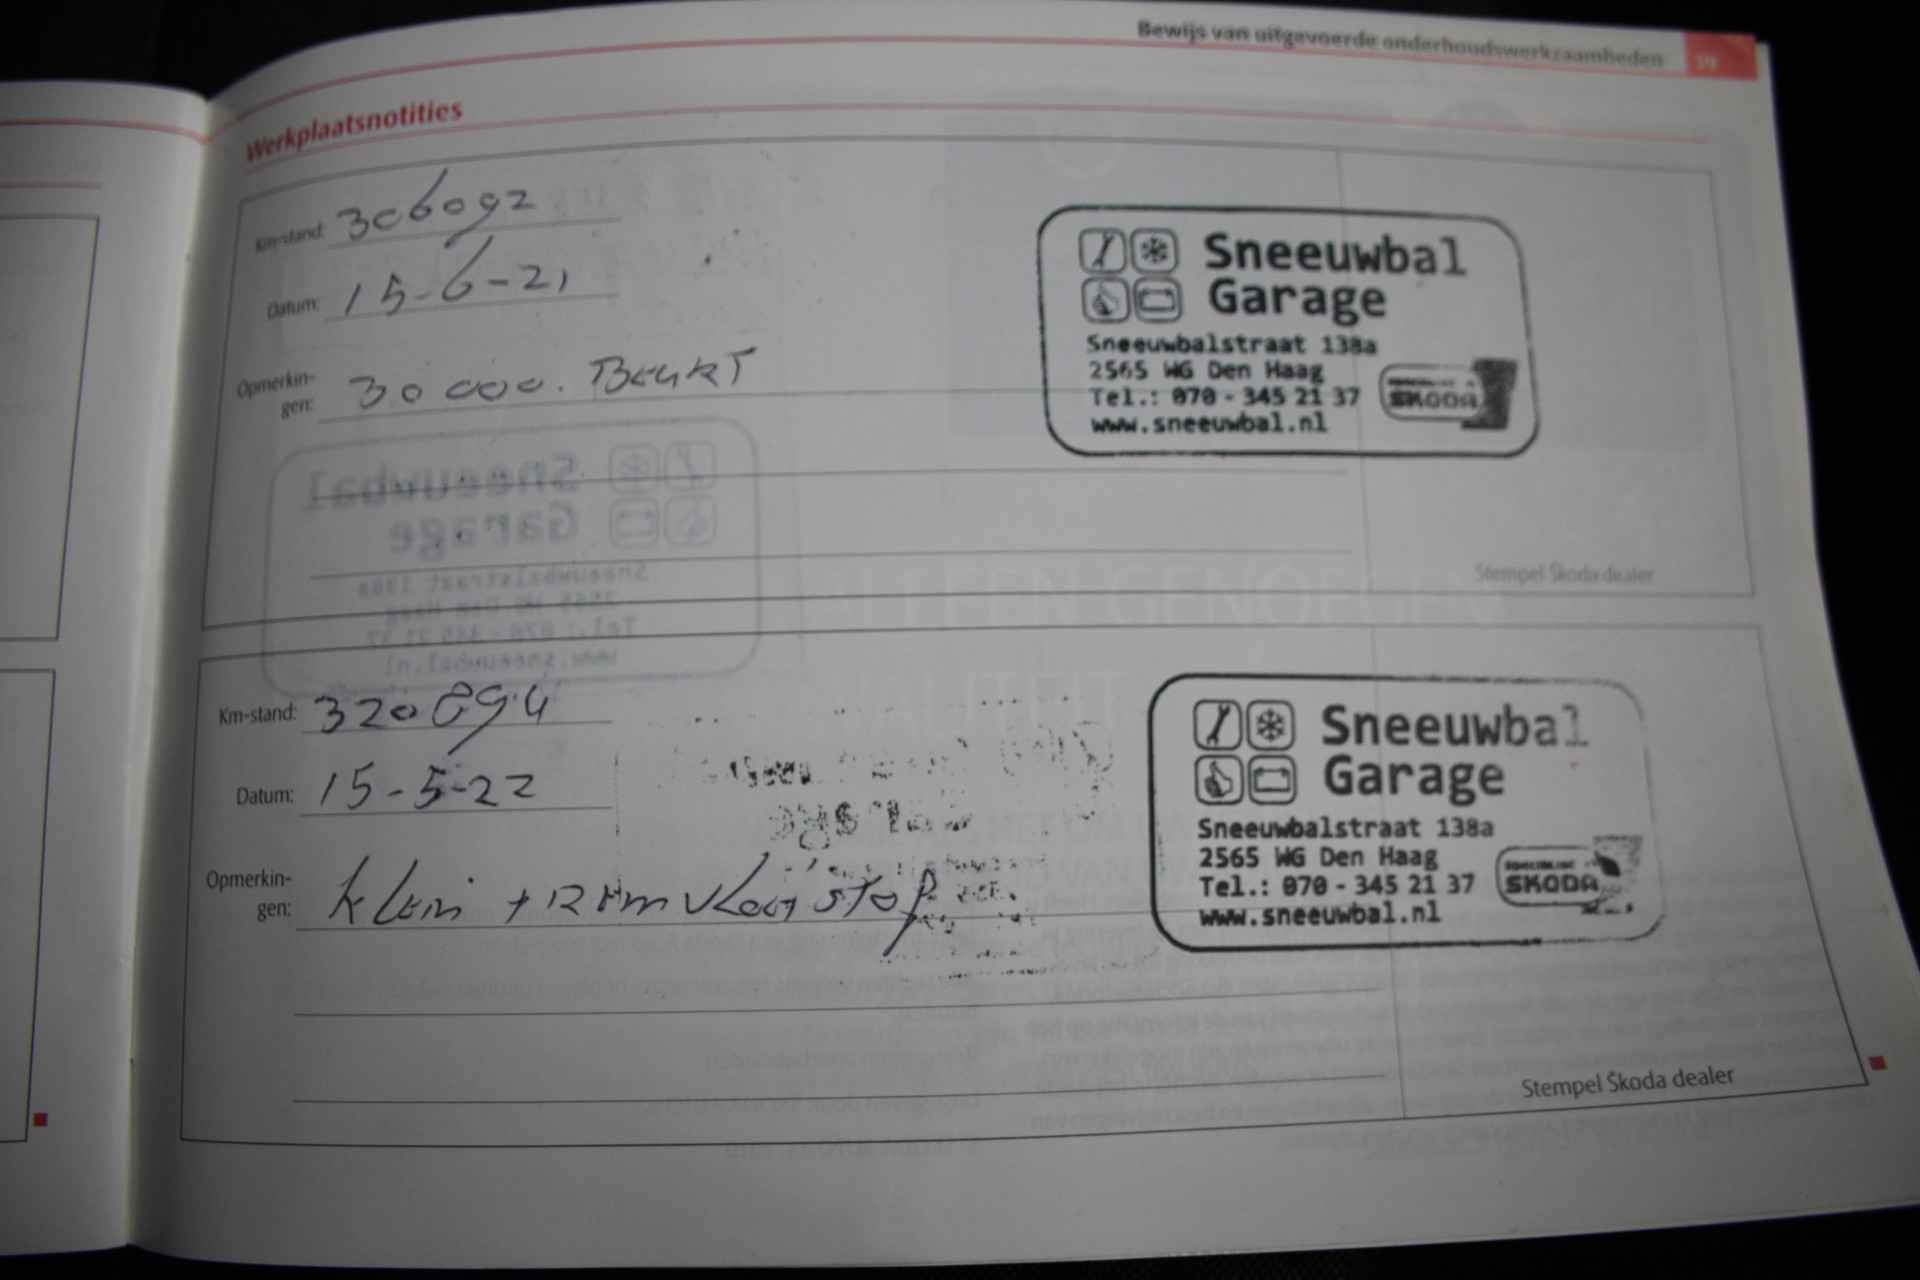 Bewijs van uitgevoerde onderhoudswerkzaamheden 39
Werkplaatsnotities
Km-stand: 306092
Datum: 15-6-21
Opmerkin-
gen: 30 000. Beurt
Sneeuwbal
Garage
Sneeuwbalstraat 138a
2565 WG Den Haag
Tel.: 070 - 345 21 37
www.sneeuwbal.nl
ŠKODA
Stempel Škoda dealer
Km-stand: 320894
Datum: 15-5-22
Opmerkin-
gen: klein + Remvloeistof
Sneeuwbal
Garage
Sneeuwbalstraat 138a
2565 WG Den Haag
Tel.: 070 - 345 21 37
www.sneeuwbal.nl
ŠKODA
Stempel Škoda dealer